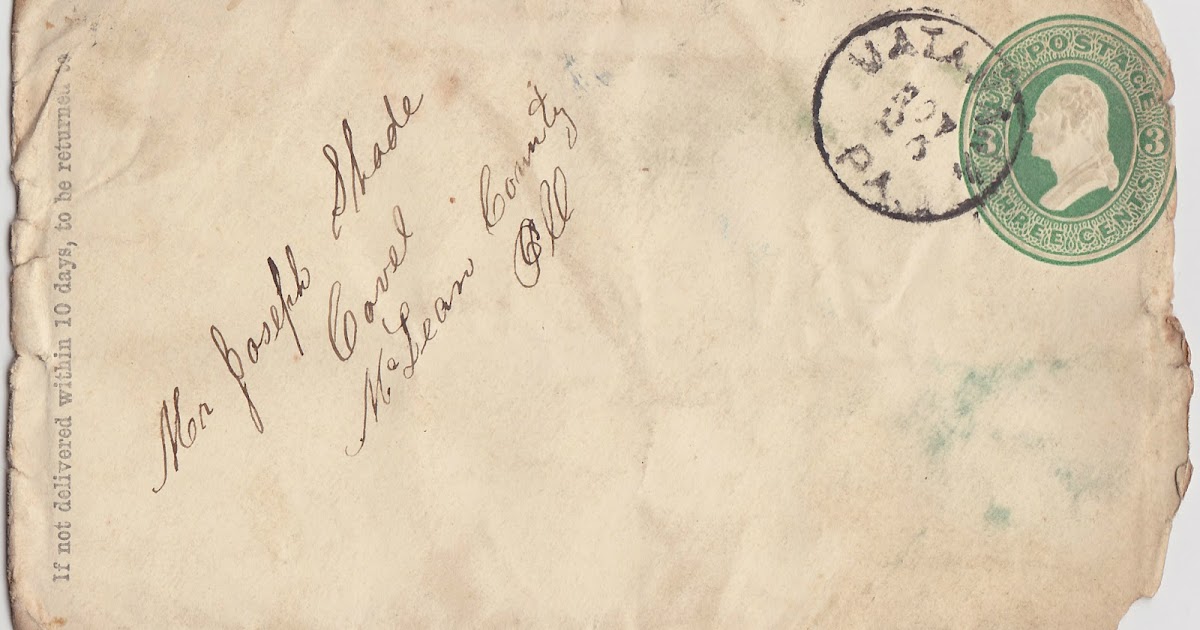 If not delivered within 10 days, to be returned to
Mr Joseph Shade
Covel
McLean County
Ill
NOV
PA.
U.S. POSTAGE
3 3
THREE CENTS